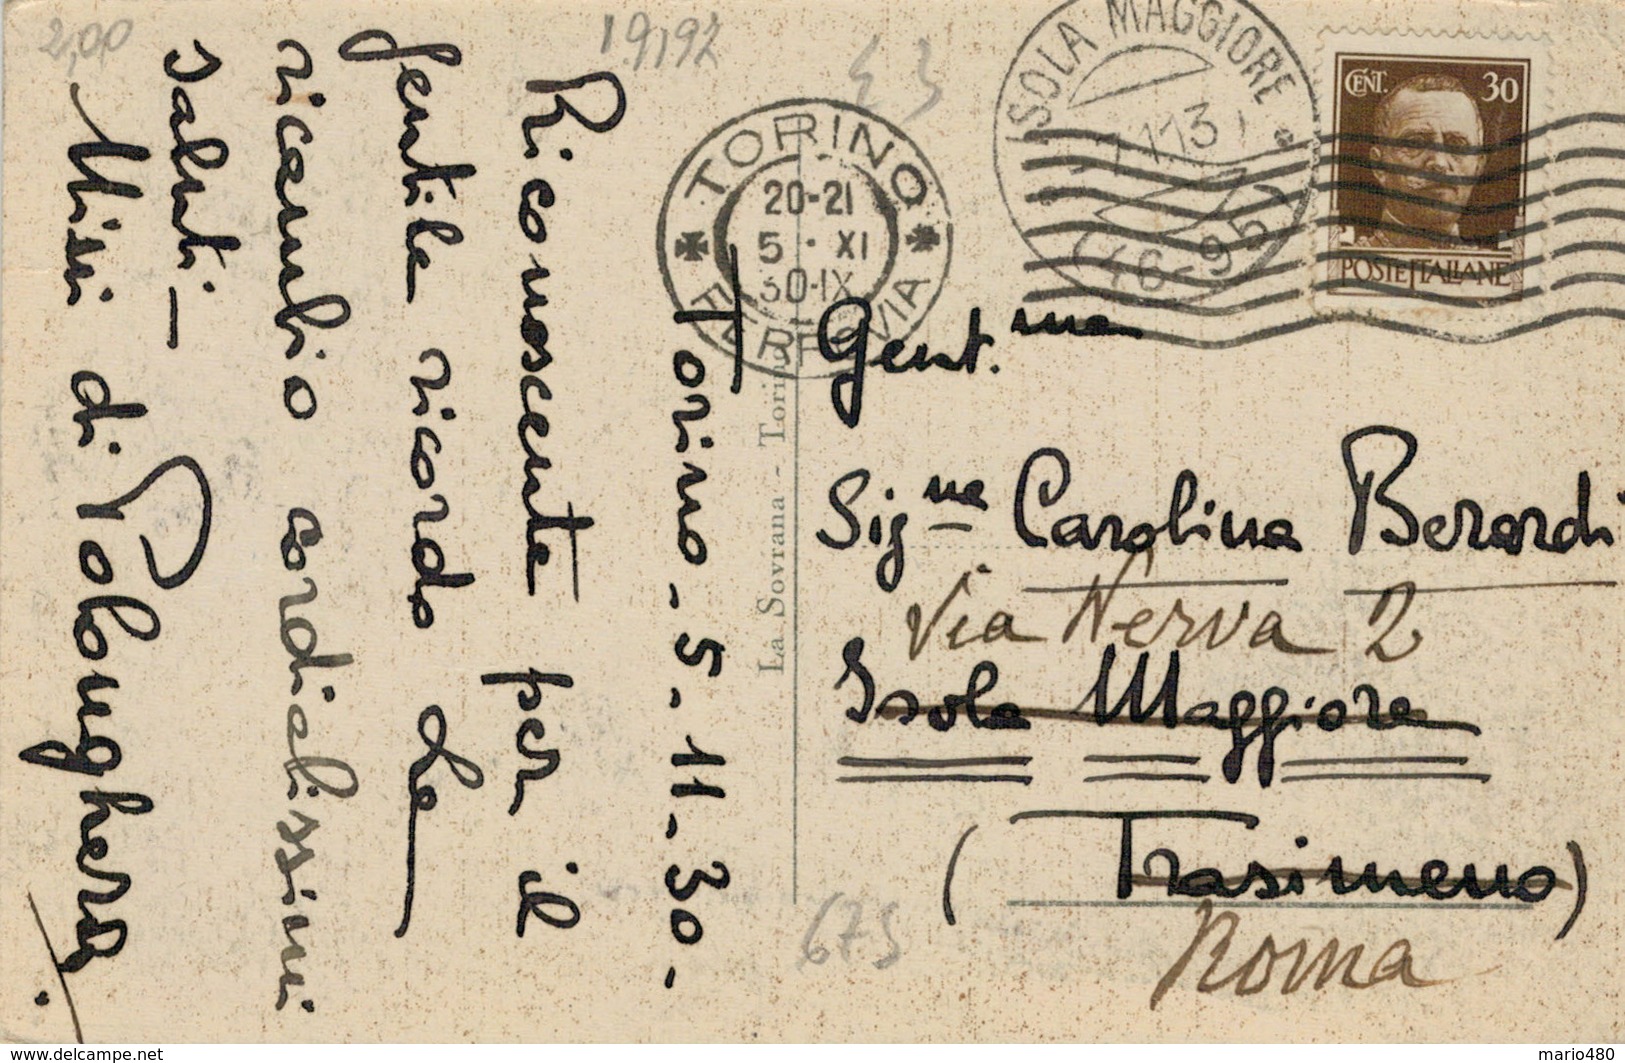 2,00
19,92
Torino. 5. 11. 30.
Riconoscente per il
gentile ricordo Le
ricambio cordialissimi
saluti –
Mimì di Polonghera.
La Sovrana - Torino
TORINO
20-21
5 · XI
30·IX
FERROVIA
ISOLA MAGGIORE
(46-95)
CENT. 30
POSTE ITALIANE
Gent.ma
Sig.na Carolina Berardi
Via Nerva 2
Isola Maggiore
(Trasimeno)
Roma
675
www.delcampe.net
mario480